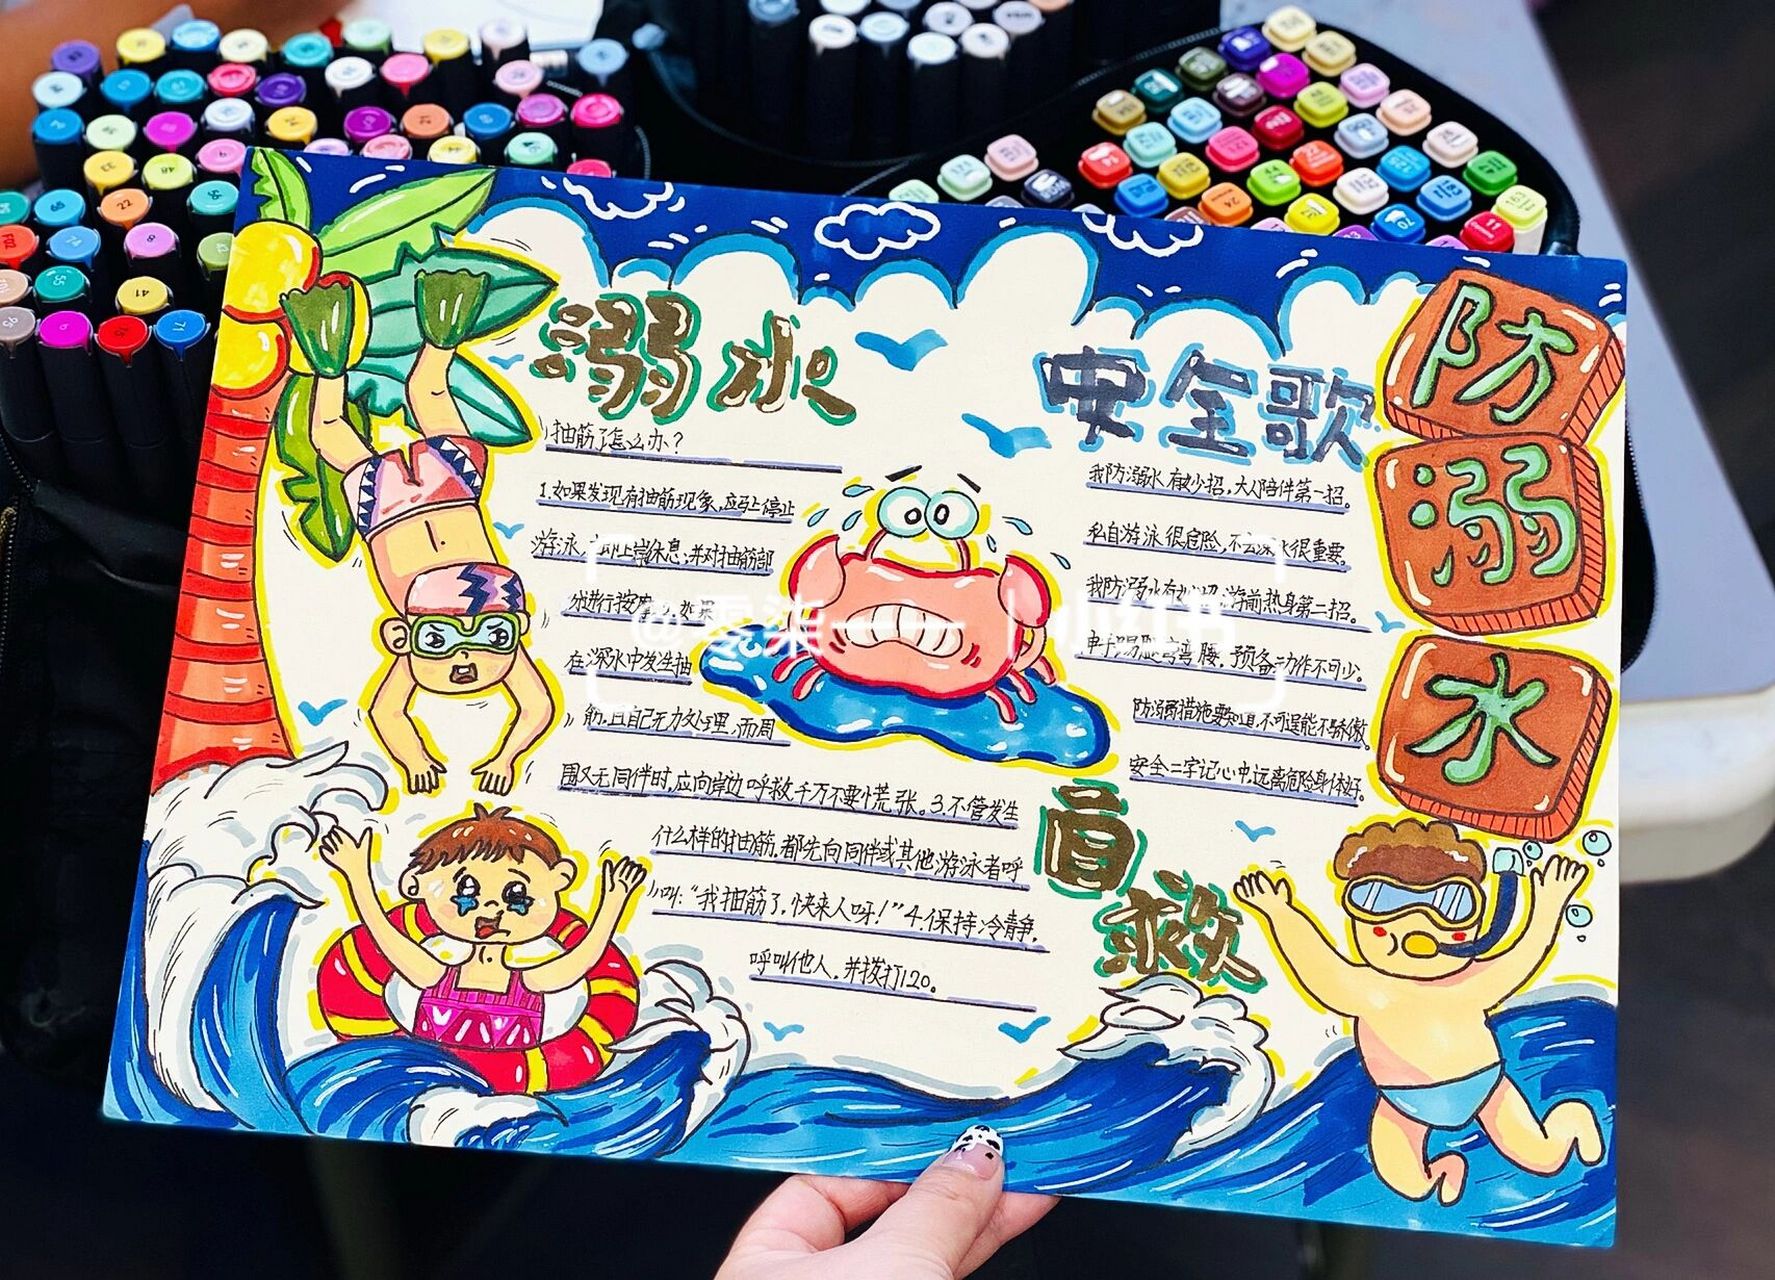 防溺水
溺水
自救
安全歌
抽筋了怎么办？
1.如果发现有抽筋现象，应马上停止
游泳，立即上岸休息；并对抽筋部
分进行按摩。2.如果
在深水中发生抽
筋，且自己无力处理，而周
围又无同伴时，应向岸边呼救千万不要慌张。3.不管发生
什么样的抽筋，都先向同伴或其他游泳者呼
叫：“我抽筋了，快来人呀！”4.保持冷静，
呼叫他人，并拨打120。
我防溺水有妙招，大人陪伴第一招。
私自游泳很危险，不去深水很重要。
我防溺水有妙招，游前热身第二招。
伸手踢腿弯弯腰，预备动作不可少。
防溺措施要知道，不可逞能不骄傲。
安全二字记心中，远离危险身体好。
@零柒一一 | 小红书